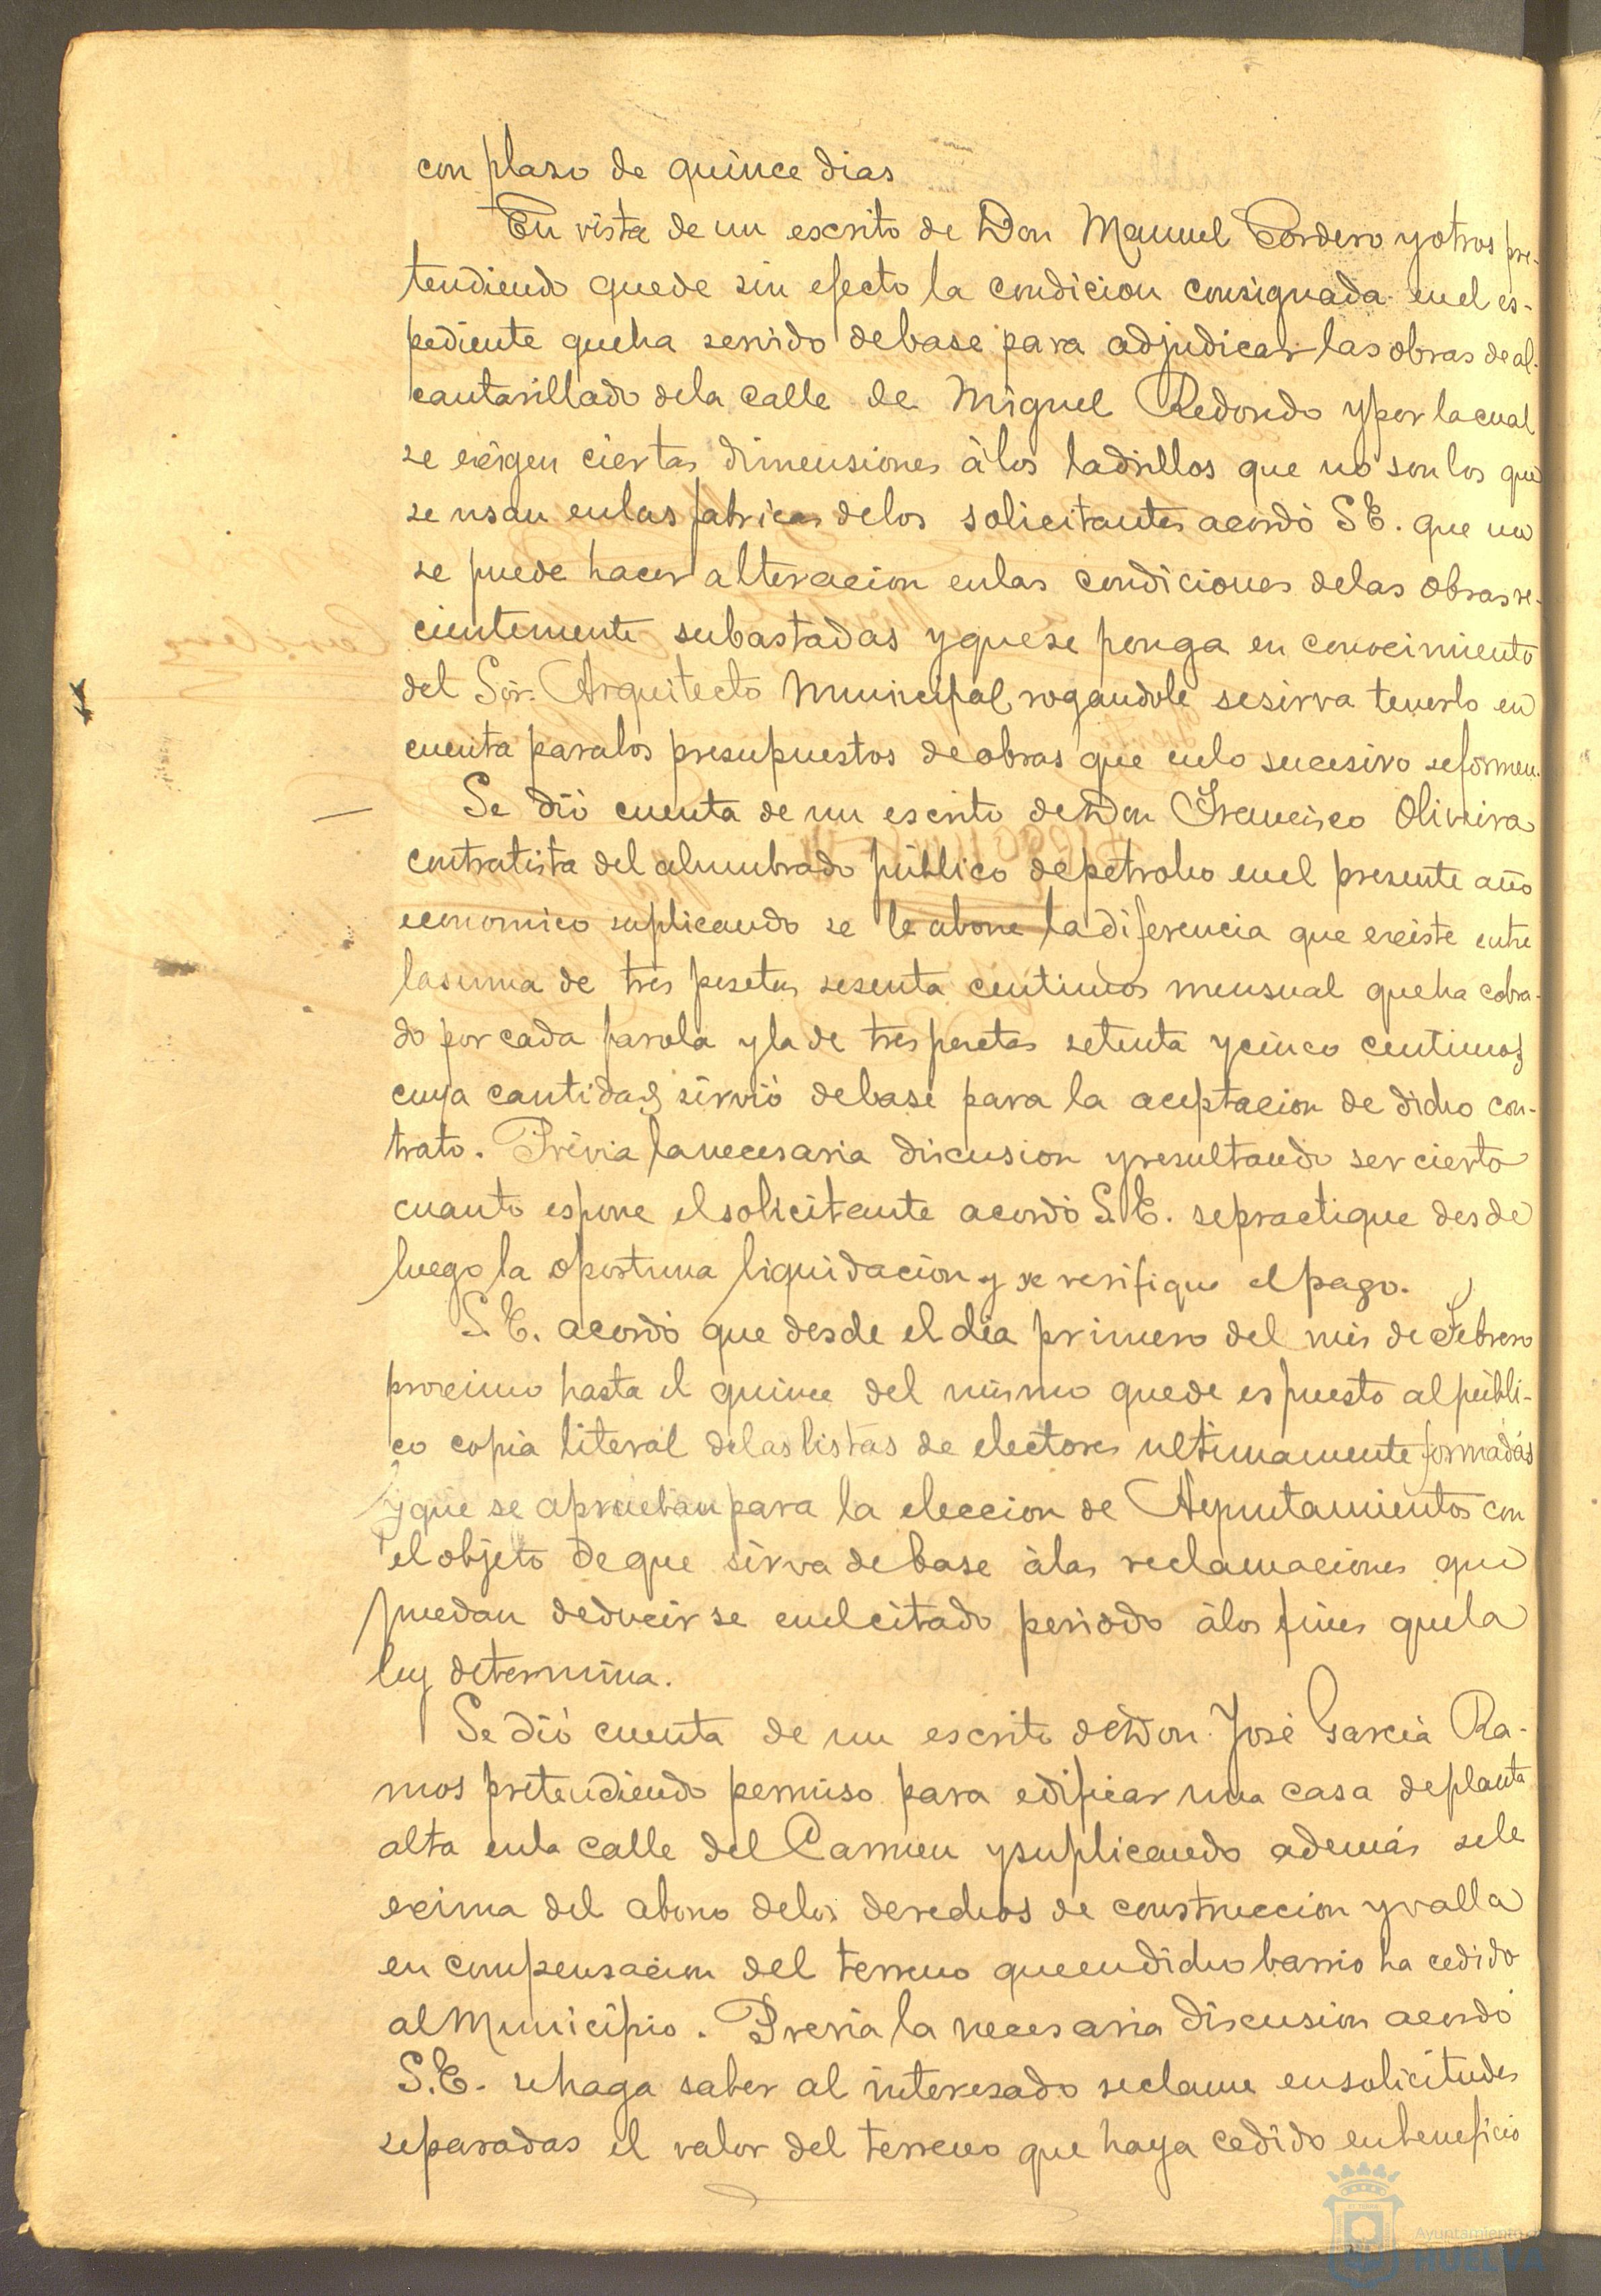 con plazo de quince dias
En vista de un escrito de Don Manuel Cordero y otros pre-
tendiendo quede sin efecto la condicion consignada en el es-
pediente que ha servido de base para adjudicar las obras de al-
cantarillado de la calle de Miguel Redondo y por la cual
se exigen ciertas dimensiones á los ladrillos que no son los que
se usan en las fabricas de los solicitantes acordó S.E. que no
se puede hacer alteracion en las condiciones de las obras re-
cientemente subastadas y que se ponga en conocimiento
del Sor. Arquitecto Municipal rogandole se sirva tenerlo en
cuenta para los presupuestos de obras que en lo sucesivo se formen.
Se dió cuenta de un escrito de Don Francisco Oliveira
contratista del alumbrado público de petroleo en el presente año
economico suplicando se le abone la diferencia que existe entre
la suma de tres pesetas sesenta centimos mensual que ha cobra-
do por cada farola y la de tres pesetas setenta y cinco centimos
cuya cantidad sirvió de base para la aceptacion de dicho con-
trato. Prévia la necesaria discusion y resultando ser cierto
cuanto espone el solicitante acordó S.E. se practique desde
luego la oportuna liquidacion y se verifique el pago.
S.E. acordó que desde el dia primero del mes de Febrero
proximo hasta el quince del mismo quede espuesto al públi-
co copia literal de las listas de electores ultimamente formadas
y que se aprueban para la eleccion de Ayuntamientos con
el objeto de que sirva de base á las reclamaciones que
puedan deducirse en el citado periodo á los fines que la
ley determina.
Se dió cuenta de un escrito de Don José Garcia Ra-
mos pretendiendo permiso para edificar una casa de planta
alta en la calle del Carmen y suplicando además se le
exima del abono de los derechos de construccion y valla
en compensacion del terreno que en dicho barrio ha cedido
al Municipio. Previa la necesaria discusion acordó
S.E. se haga saber al interesado reclame en solicitudes
separadas el valor del terreno que haya cedido en beneficio
Ayuntamiento
HUELVA